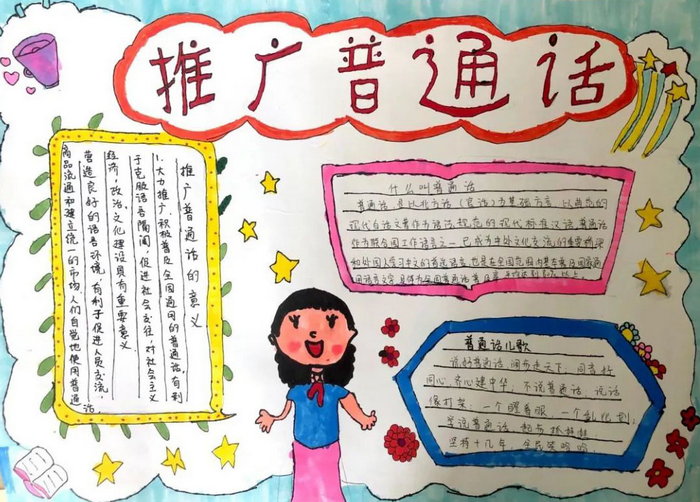 推广普通话
推广普通话的意义
1、大力推广、积极普及全国通用的普通话，有利
于克服语言隔阂，促进社会交往，对社会主义
经济，政治，文化建设具有重要意义
营造良好的语言环境，有利于促进人员交流，
商品流通和建立统一的市场，人们自觉地使用普通话，
什么叫普通话
普通话，是以北方话（官话）为基础方言，以典范的
现代白话文著作为语法规范的现代标准汉语，普通话
作为联合国工作语言之一，已成为中外文化交流的重要
和外国人学习中文的首选语言，也是在全国范围内
普通话儿歌
说好普通话，阔步走天下，同音
同心，齐心建中华，不说普通话，说话
像打架，一个
学说普通话，起步抓娃娃
坚持十几年，全民笑哈哈，